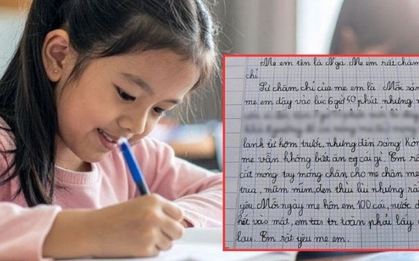 Mẹ em tên là Nga. Mẹ em rất chăm
chỉ
Sự chăm chỉ của mẹ em là Mỗi sán
mẹ em dậy vào lúc 6 giờ 50 phút nhưng
lạnh từ hôm trước, nhưng đến sáng hôm
mẹ vẫn không biết ăn cái gì. Em rất
cắt móng tay móng chân cho mẹ chân mẹ
trưa, mũm mĩm, đen thùi lùi nhưng rấ
yêu. Mỗi ngày mẹ hôn em 100 cái, nước d
hết vào mặt, em tai toàn phải lấy
lau. Em rất yêu mẹ em.